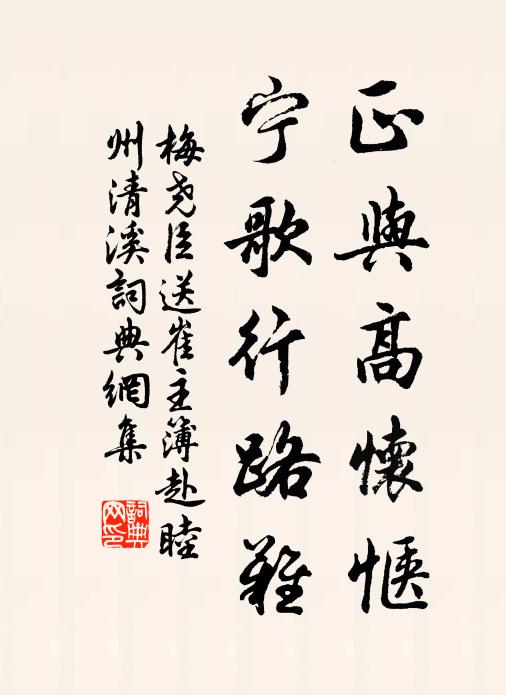 正與高懷愜
宁歌行路難
梅尧臣送崔主簿赴睦
州清溪詞典網集
詞典
网印